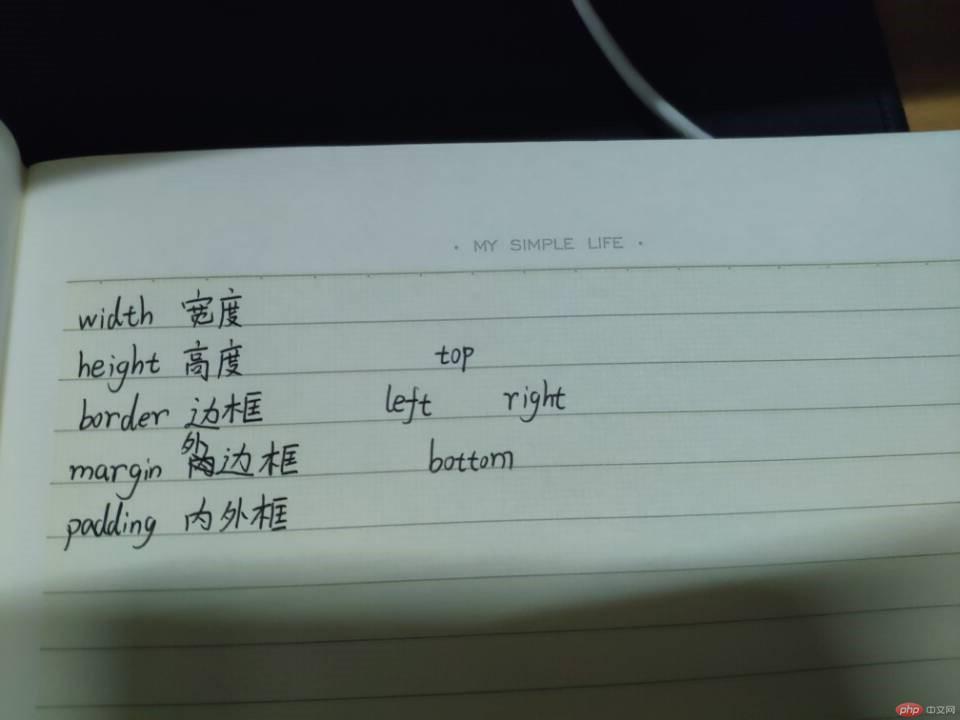 · MY SIMPLE LIFE ·
width 宽度
height 高度 top
border 边框 left right
margin 外边框 bottom
padding 内外框
php 中文网